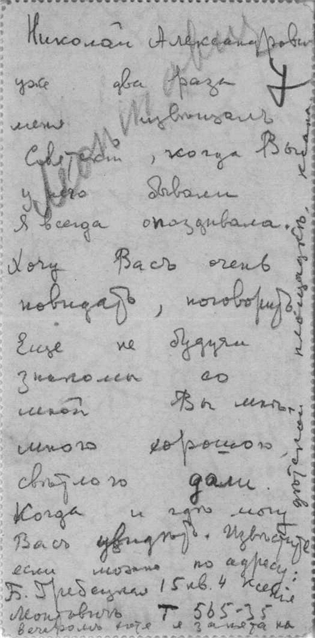 Николай Александрович
уже два раза
меня извѣщалъ
Советскій, когда Вы
у него бывали
Я всегда опаздивала.
Хочу Васъ очень
повидать, поговорить.
Еще не будучи
знакомы со
мной Вы мнѣ
много хорошою,
свѣтлого дали.
Когда и гдѣ могу
Васъ увидѣть. Извѣстите
если можно по адресу:
Б. Гребецкая 15 кв. 4 Ксенія
Монтовичъ Т 565-35
вечеромъ хотя я занята на
дѣтской площадкѣ,